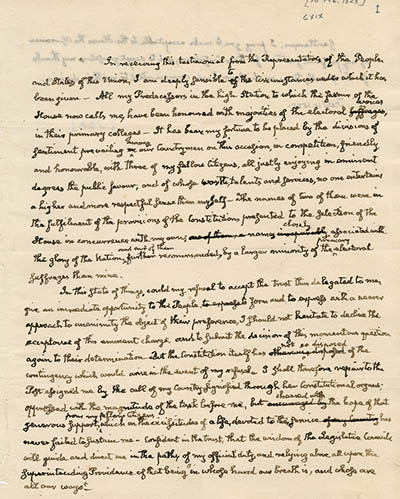 [10 Feb. 1825]
CXIX
1
In receiving this testimonial from the Representatives of the People,
and States of this Union, I am deeply sensible to the circumstances under which it has
been given — All my Predecessors in the high Station, to which the favour of the
House now calls me, have been honoured with majorities of the electoral suffrages, voices
in their primary colleges — It has been my fortune to be placed by the divisions of
sentiment prevailing among our Countrymen on this occasion in competition, friendly
and honourable, with three of my fellow citizens, all justly enjoying in eminent
degrees the public favour; and of whose worth, talents and services, no one entertains
a higher and more respectful sense than myself — The names of two of them were, in
the fulfilment of the provisions of the Constitution, presented to the selection of the
House in concurrence with my own; one of them, a name inseparably closely associated with
the glory of the Nation, and one of them further recommended, by a larger minority of the primary electoral
suffrages than mine.
In this State of things, could my refusal to accept the trust thus delegated to me,
give an immediate opportunity to the People to form and to express with a nearer
approach to unanimity the object of their preference, I should not hesitate to decline the
acceptance of this eminent charge, and to submit the decision of this momentous question
again to their determination. But the Constitution itself has not so disposed of the
contingency which would arise in the event of my refusal. I shall therefore repair to the
Post assigned me by the call of my Country, signified through her Constitutional organs;
oppressed with the magnitude of the task before me, but cheered with the hope of that
generous support from my fellow Citizens, which in the vicissitudes of a life, devoted to the Service of my Country has
never failed to sustain me — confident in the trust, that the wisdom of the Legislative Councils
will guide and direct me in the path of my official duty, and relying above all upon the
Superintending Providence of that Being "in whose hand our breath is, and whose are
all our ways".